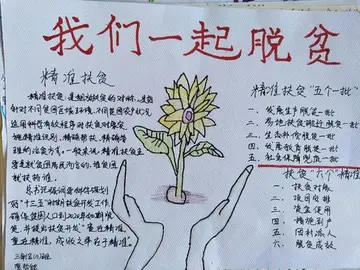 我们一起脱贫
精准扶贫
精准扶贫，是粗放扶贫的对称，是指
针对不同贫困区域环境、不同贫困农户状况，
运用科学有效程序对扶贫对象实
施精准识别、精确帮扶、精确管
理的治贫方式。一般来说，精准扶贫主
要是就贫困居民而言的，谁贫困
就扶持谁。
总书记强调要做好规划
"十三五"时期扶贫开发工作，
确保贫困人口到2020年如期脱
贫，并提出扶贫开发"贵在精准，
重在精准，成败之举在于精准"
精准扶贫"五个一批"
一、发展生产脱贫一批
二、易地扶贫搬迁脱贫一批
三、生态补偿脱贫一批
四、发展教育脱贫一批
五、社会保障兜底一批
扶贫"六个"精准
一、扶贫对象
二、项目安排
三、资金使用
四、措施到户
五、因村派人
六、脱贫成效